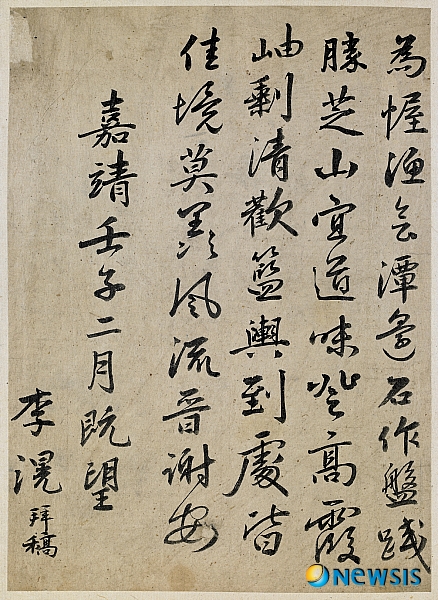 為幄潭邊石作盤踐
勝芝山宜道味登高霞
岫剩清歡籃輿到處皆
佳境莫羨風流晉謝安
嘉靖壬子二月既望
李滉拜稿
NEWSIS